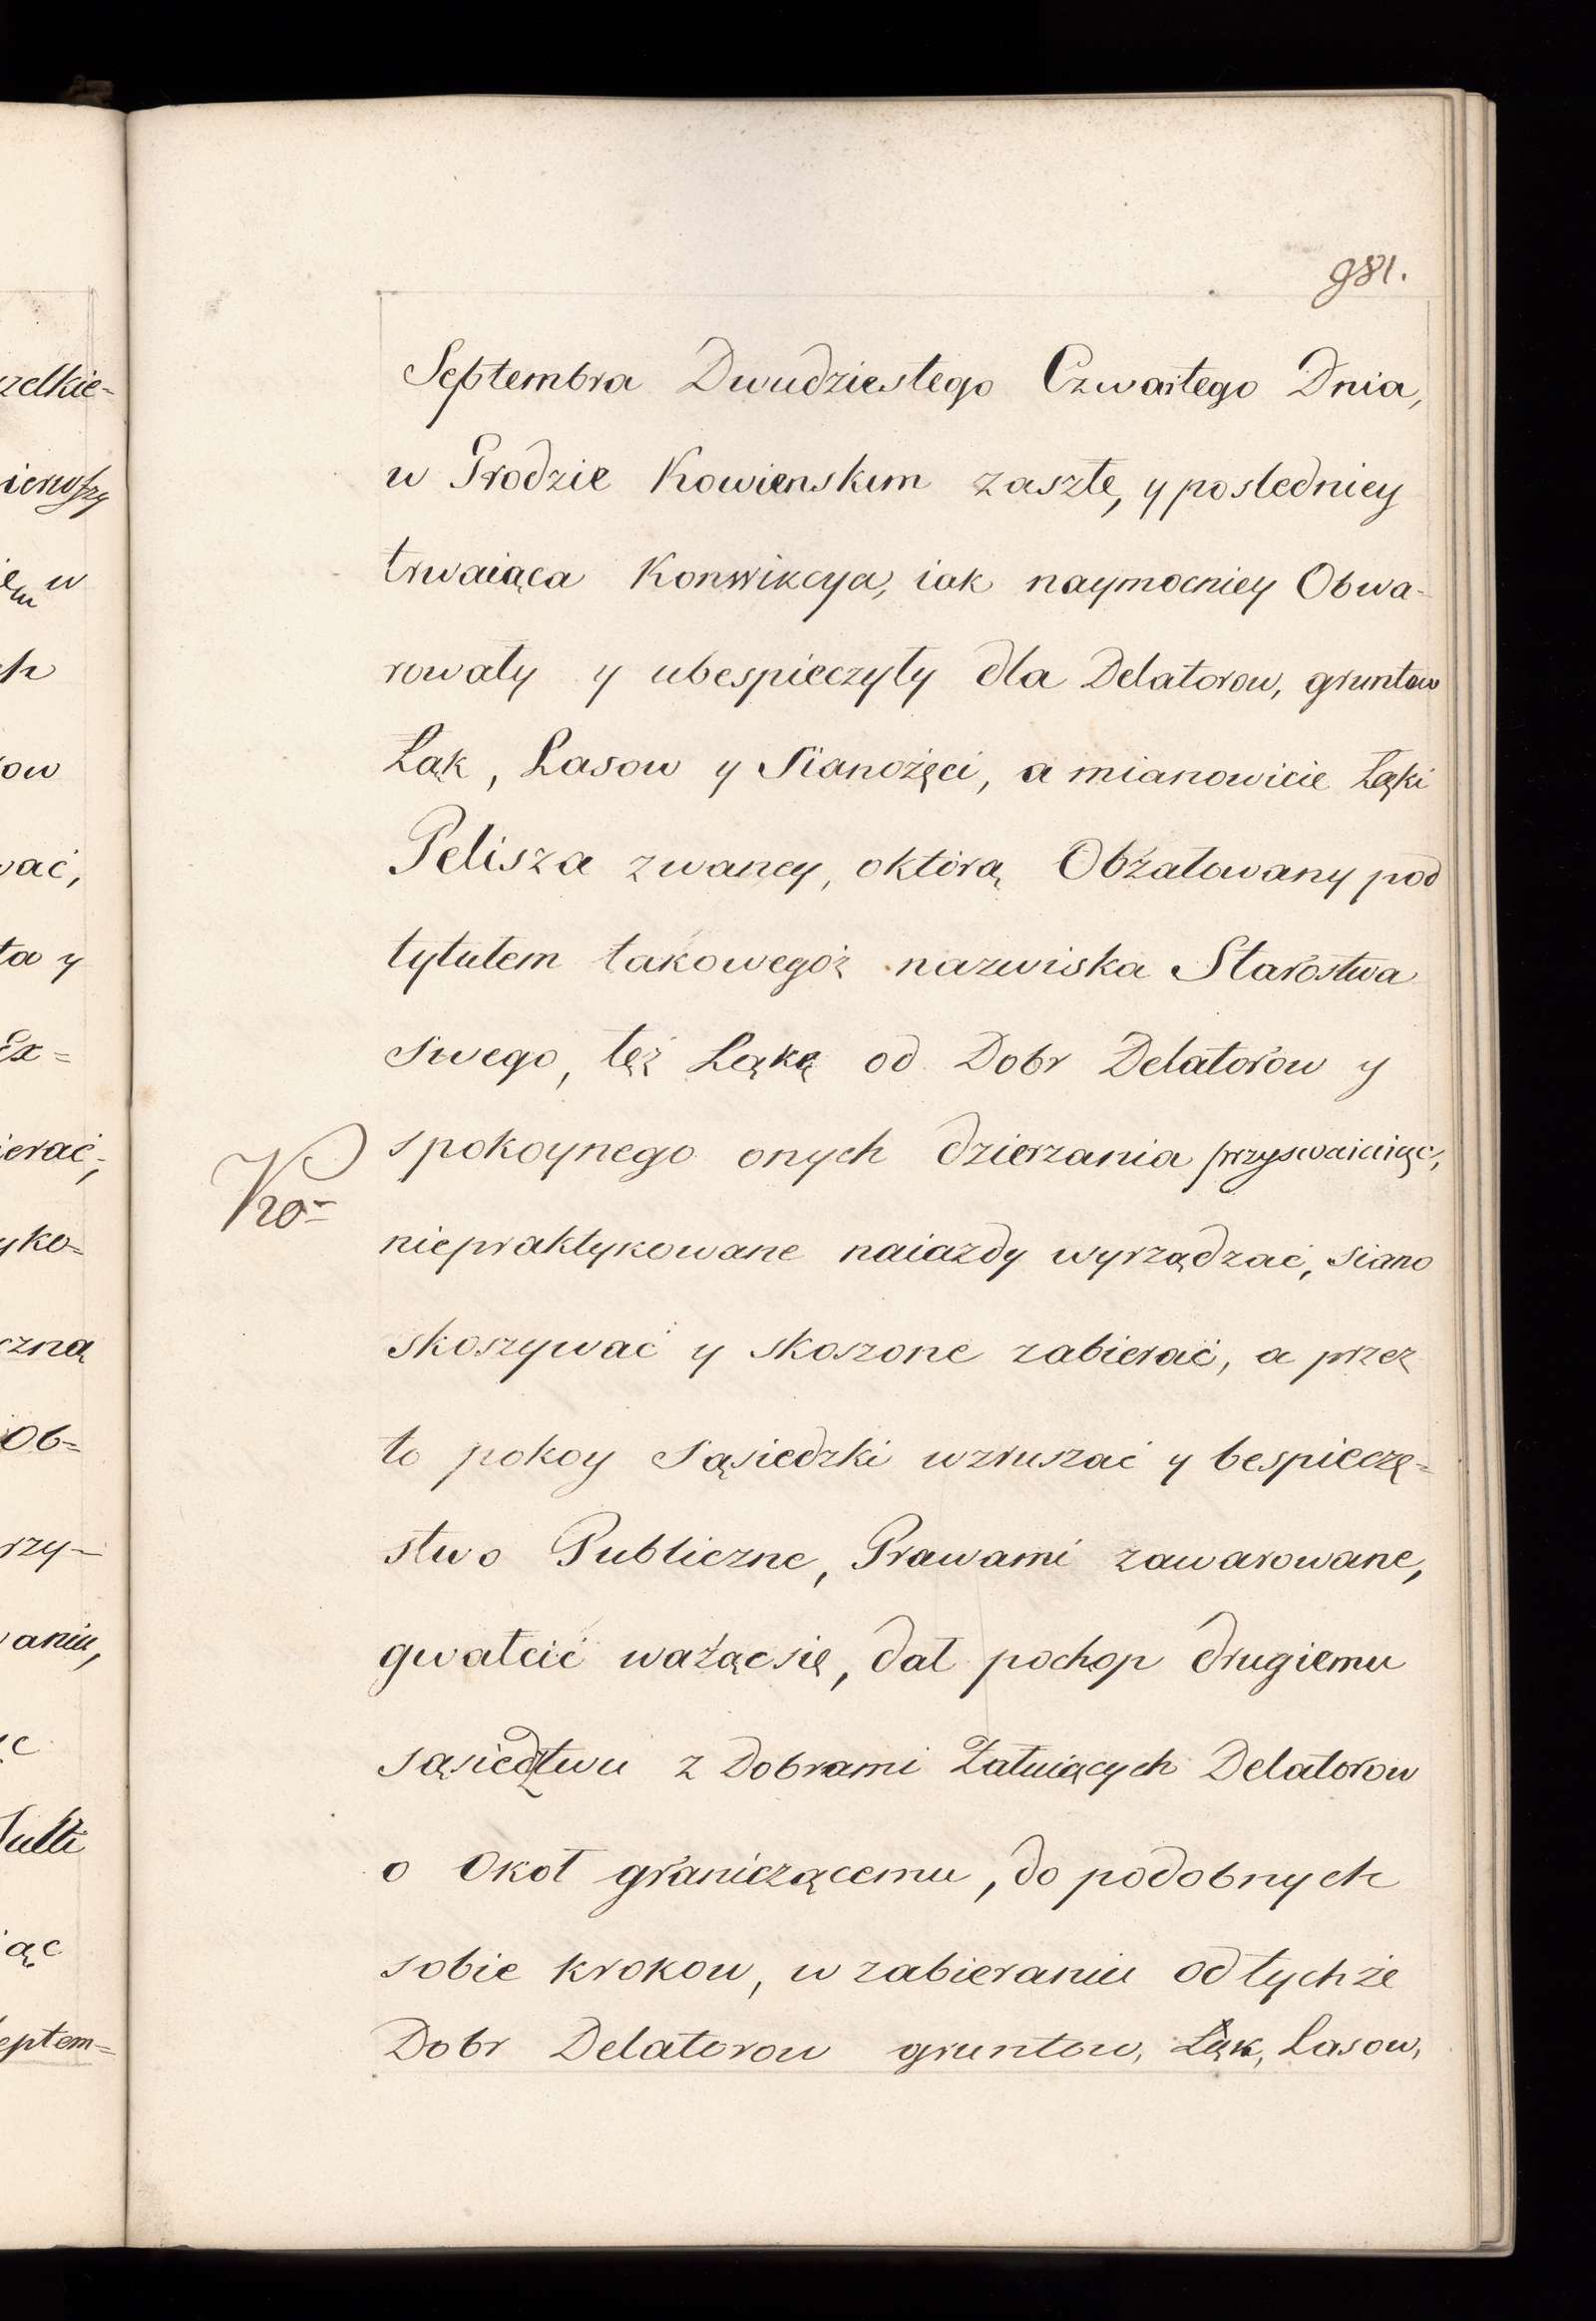 981.
Septembra Dwudziestego Czwartego Dnia,
w Grodzie Kowienskim zaszłe, y posledniey
trwaiąca Konwikcya, iak naymocniey Obwa-
rowały y ubespieczyły dla Delatorow, gruntow
Łąk, Lasow y Sianożęci, a mianowicie Łąki
Pelisza zwaney, oktorą Obżałowany pod
tytułem takowegoż nazwiska Starostwa
swego, tęż Łąkę od Dobr Delatorow y
spokoynego onych dzierzania przyswaiaiąc,
niepraktykowane naiazdy wyrządzać, siano
skoszywać y skoszone zabierać, a przez
to pokoy Sąsiedzki wzruszać y bespieczę=
stwo Publiczne, Prawami zawarowane,
gwałcić ważąc się, dał pochop drugiemu
sąsiedztwu z Dobrami Żałuiących Delatorow
o Okoł graniczącemu, do podobnych
sobie krokow, w zabieraniu od tychże
Dobr Delatorow gruntow, Łąk, Lasow,
zelkie=
w
ow
wać,
ta y
Ex=
ierać,
yko=
czną
Ob=
rzy-
waniu,
ąc
iąc
eptem=